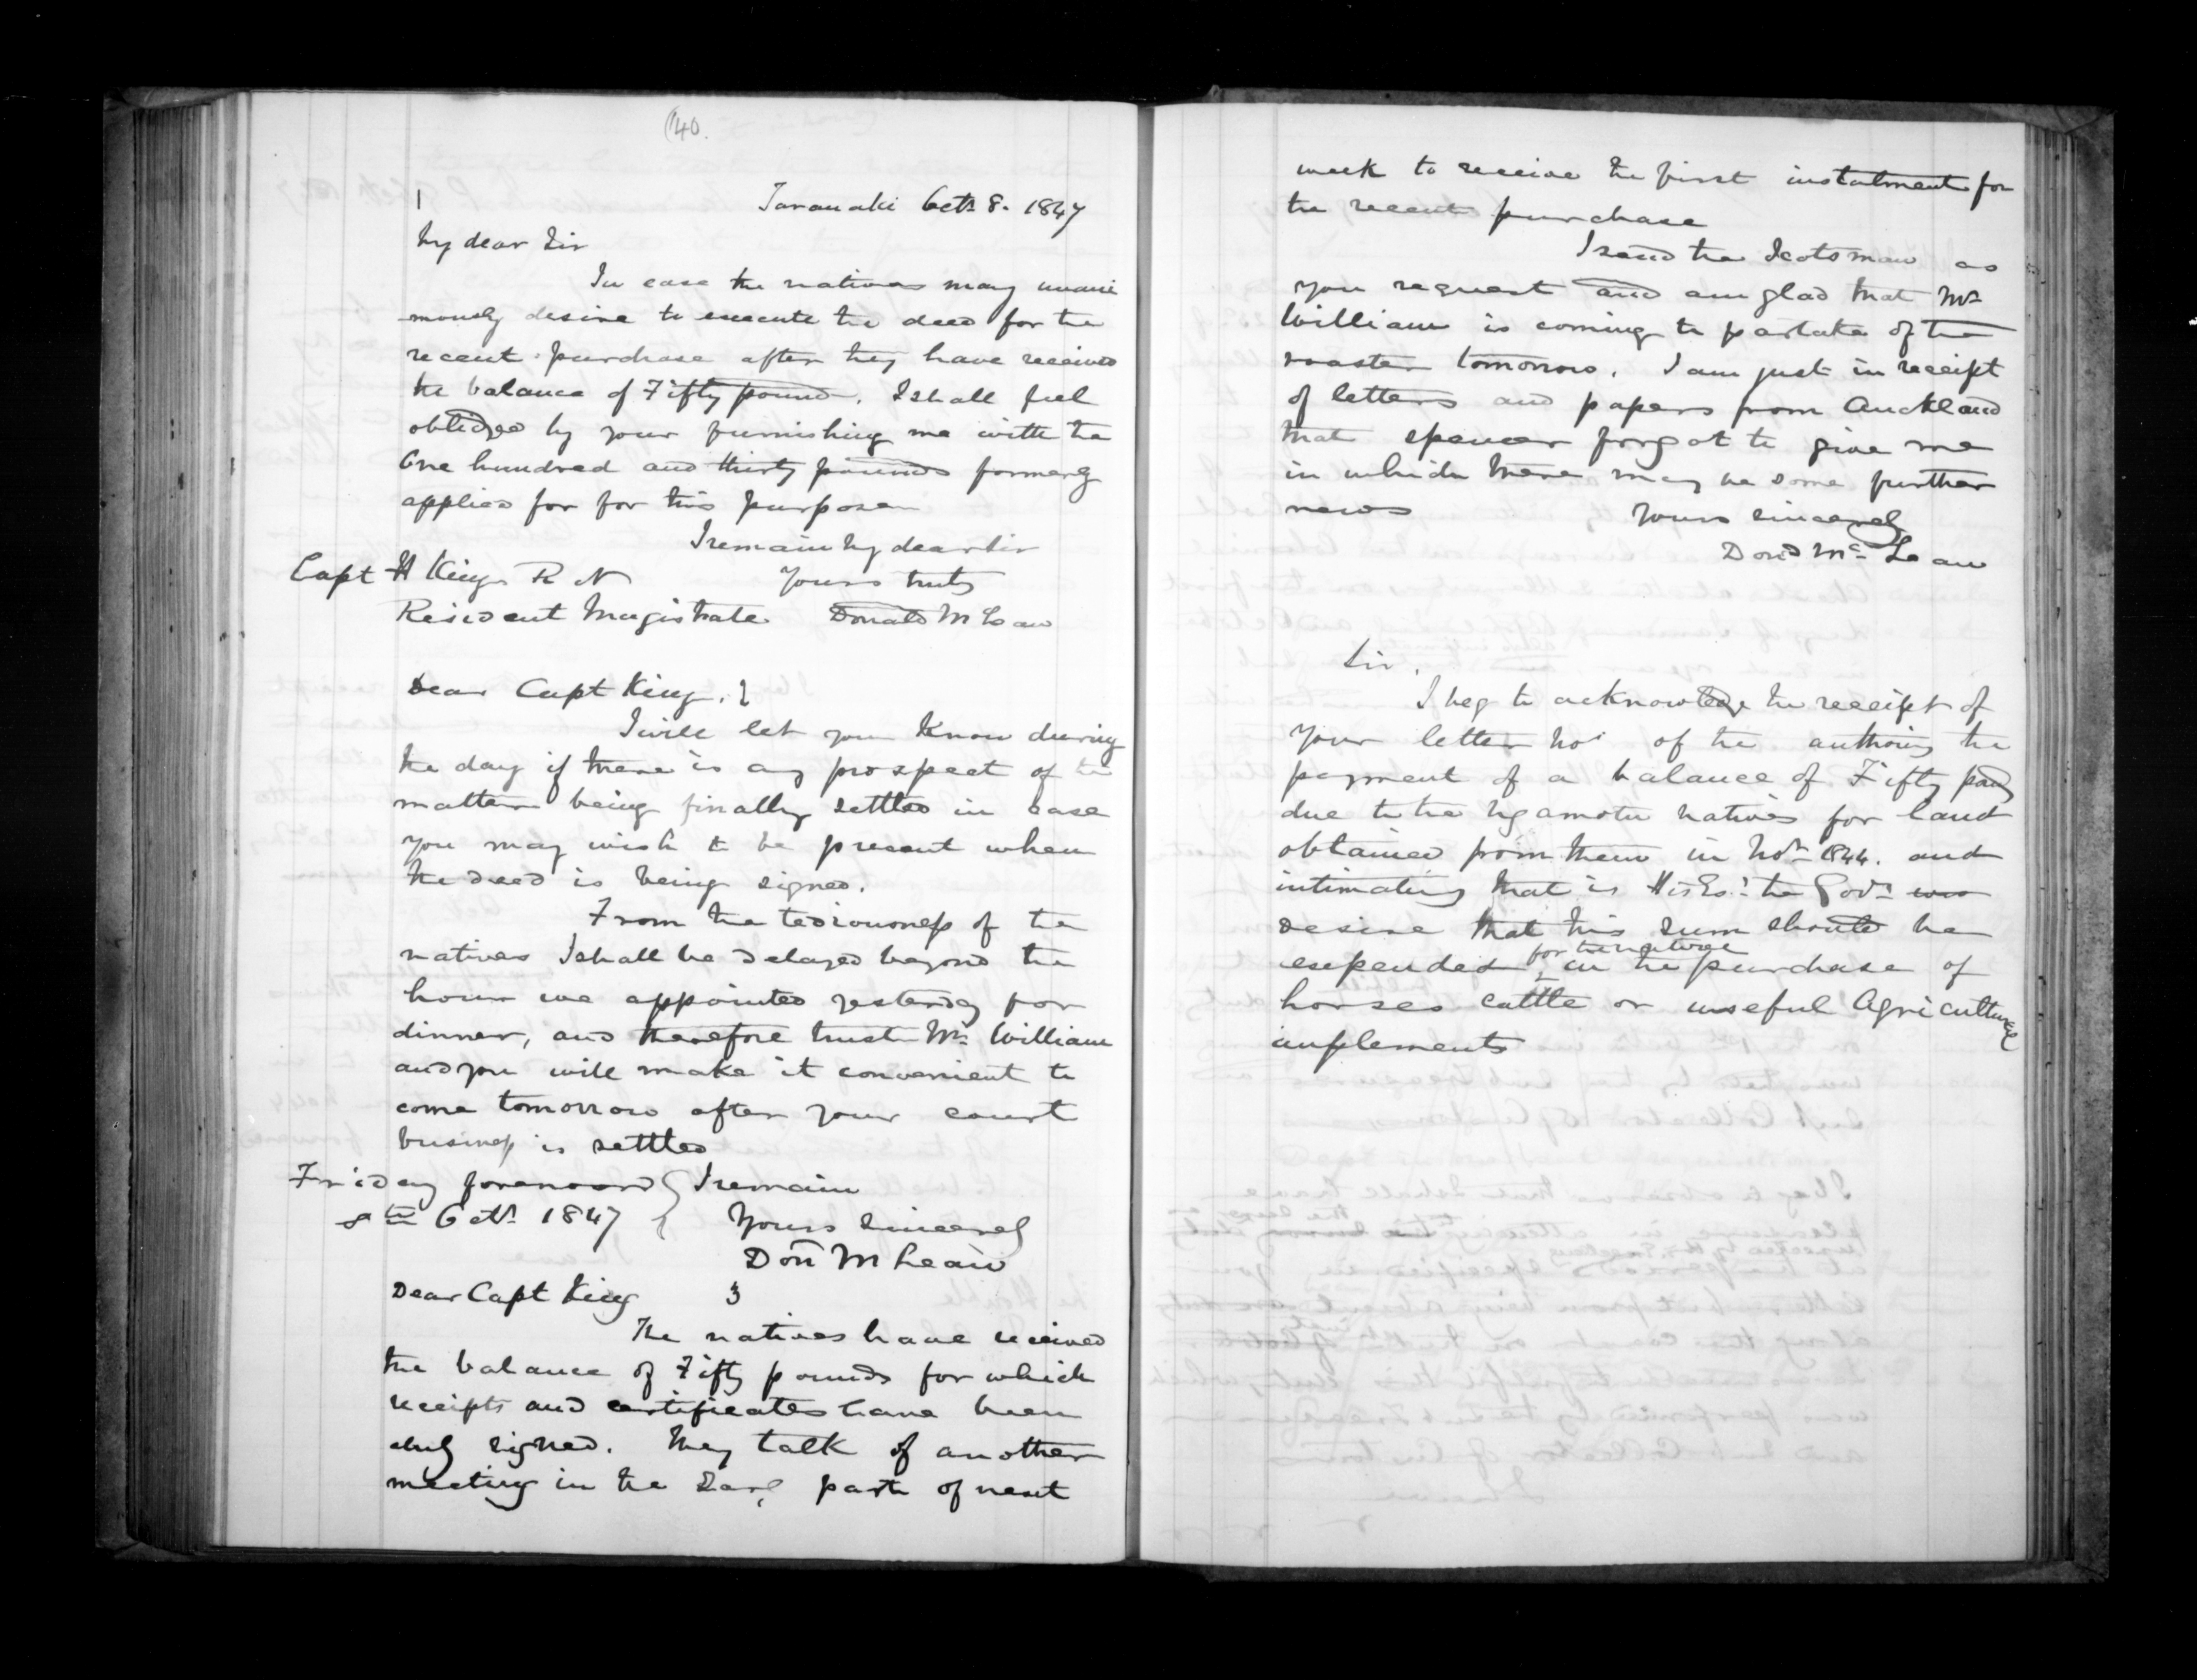 (40.
1 Taranaki Octr 8. 1847
My dear Sir
In case the natives may unani
mously desire to execute the deed for the
recent purchase after they have received
the balance of Fifty pound. I shall feel
obledged by your furnishing me with the
One hundred and thirty pounds formerly
applied for for this purpose
I remain My dear Sir
Capt H King R N Yours truly
Resident Magistrate Donald McLean
Dear Capt King. 2
I will let you know during
the day if there is any prospect of the
matter being finally settled in case
you may wish to be present when
the deed is being signed.
From the tediousness of the
natives I shall be delayed beyond the
hour we appointed yesterday for
dinner, and therefore trust Mr William
and you will make it convenient to
come tomorrow after your court
business is settled
Friday forenoon } I remain
8th Octr 1847 } Yours sincerely
Don McLean
Dear Capt King 3
The natives have received
the balance of Fifty pounds for which
receipts and certificates have been
duly signed. They talk of another
meeting in the early part of next
week to receive the first instalment for
the recent purchase
I send the Scotsman as
you request and am glad that Mr
William is coming to partake of the
roaster tomorrow. I am just in receipt
of letters and papers from Auckland
that Spencer forgot to give me
in which there may be some further
news Yours sincerely
Dond McLean
Sir.
I beg to acknowledge the receipt of
your letter No of the authoring the
payment of a balance of Fifty pounds
due to the Ngamotu natives for land
obtained from them in Novr 1844. and
intimating that is His Ex: the Govr was
desire that this sum should be
for the natives
expended in the purchase of
horses cattle or useful Agricultural
implements